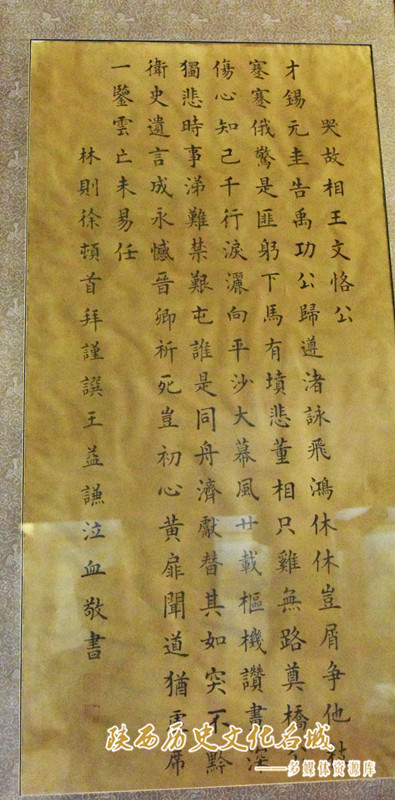 哭故相王文恪公
才錫元圭告禹功公歸遵渚詠飛鴻休休豈屑爭他技
蹇蹇俄驚是匪躬下馬有墳悲董相只雞無路奠橋公
傷心知己千行淚灑向平沙大幕風廿載樞機讚畫深
獨悲時事涕難禁艱屯誰是同舟濟獻替其如突不黔
衛史遺言成永憾晉卿祈死豈初心黃扉聞道猶虛席
一鑒雲亡未易任
林則徐頓首拜謹譔王益謙泣血敬書
陕西历史文化名城
——多媒体资源库